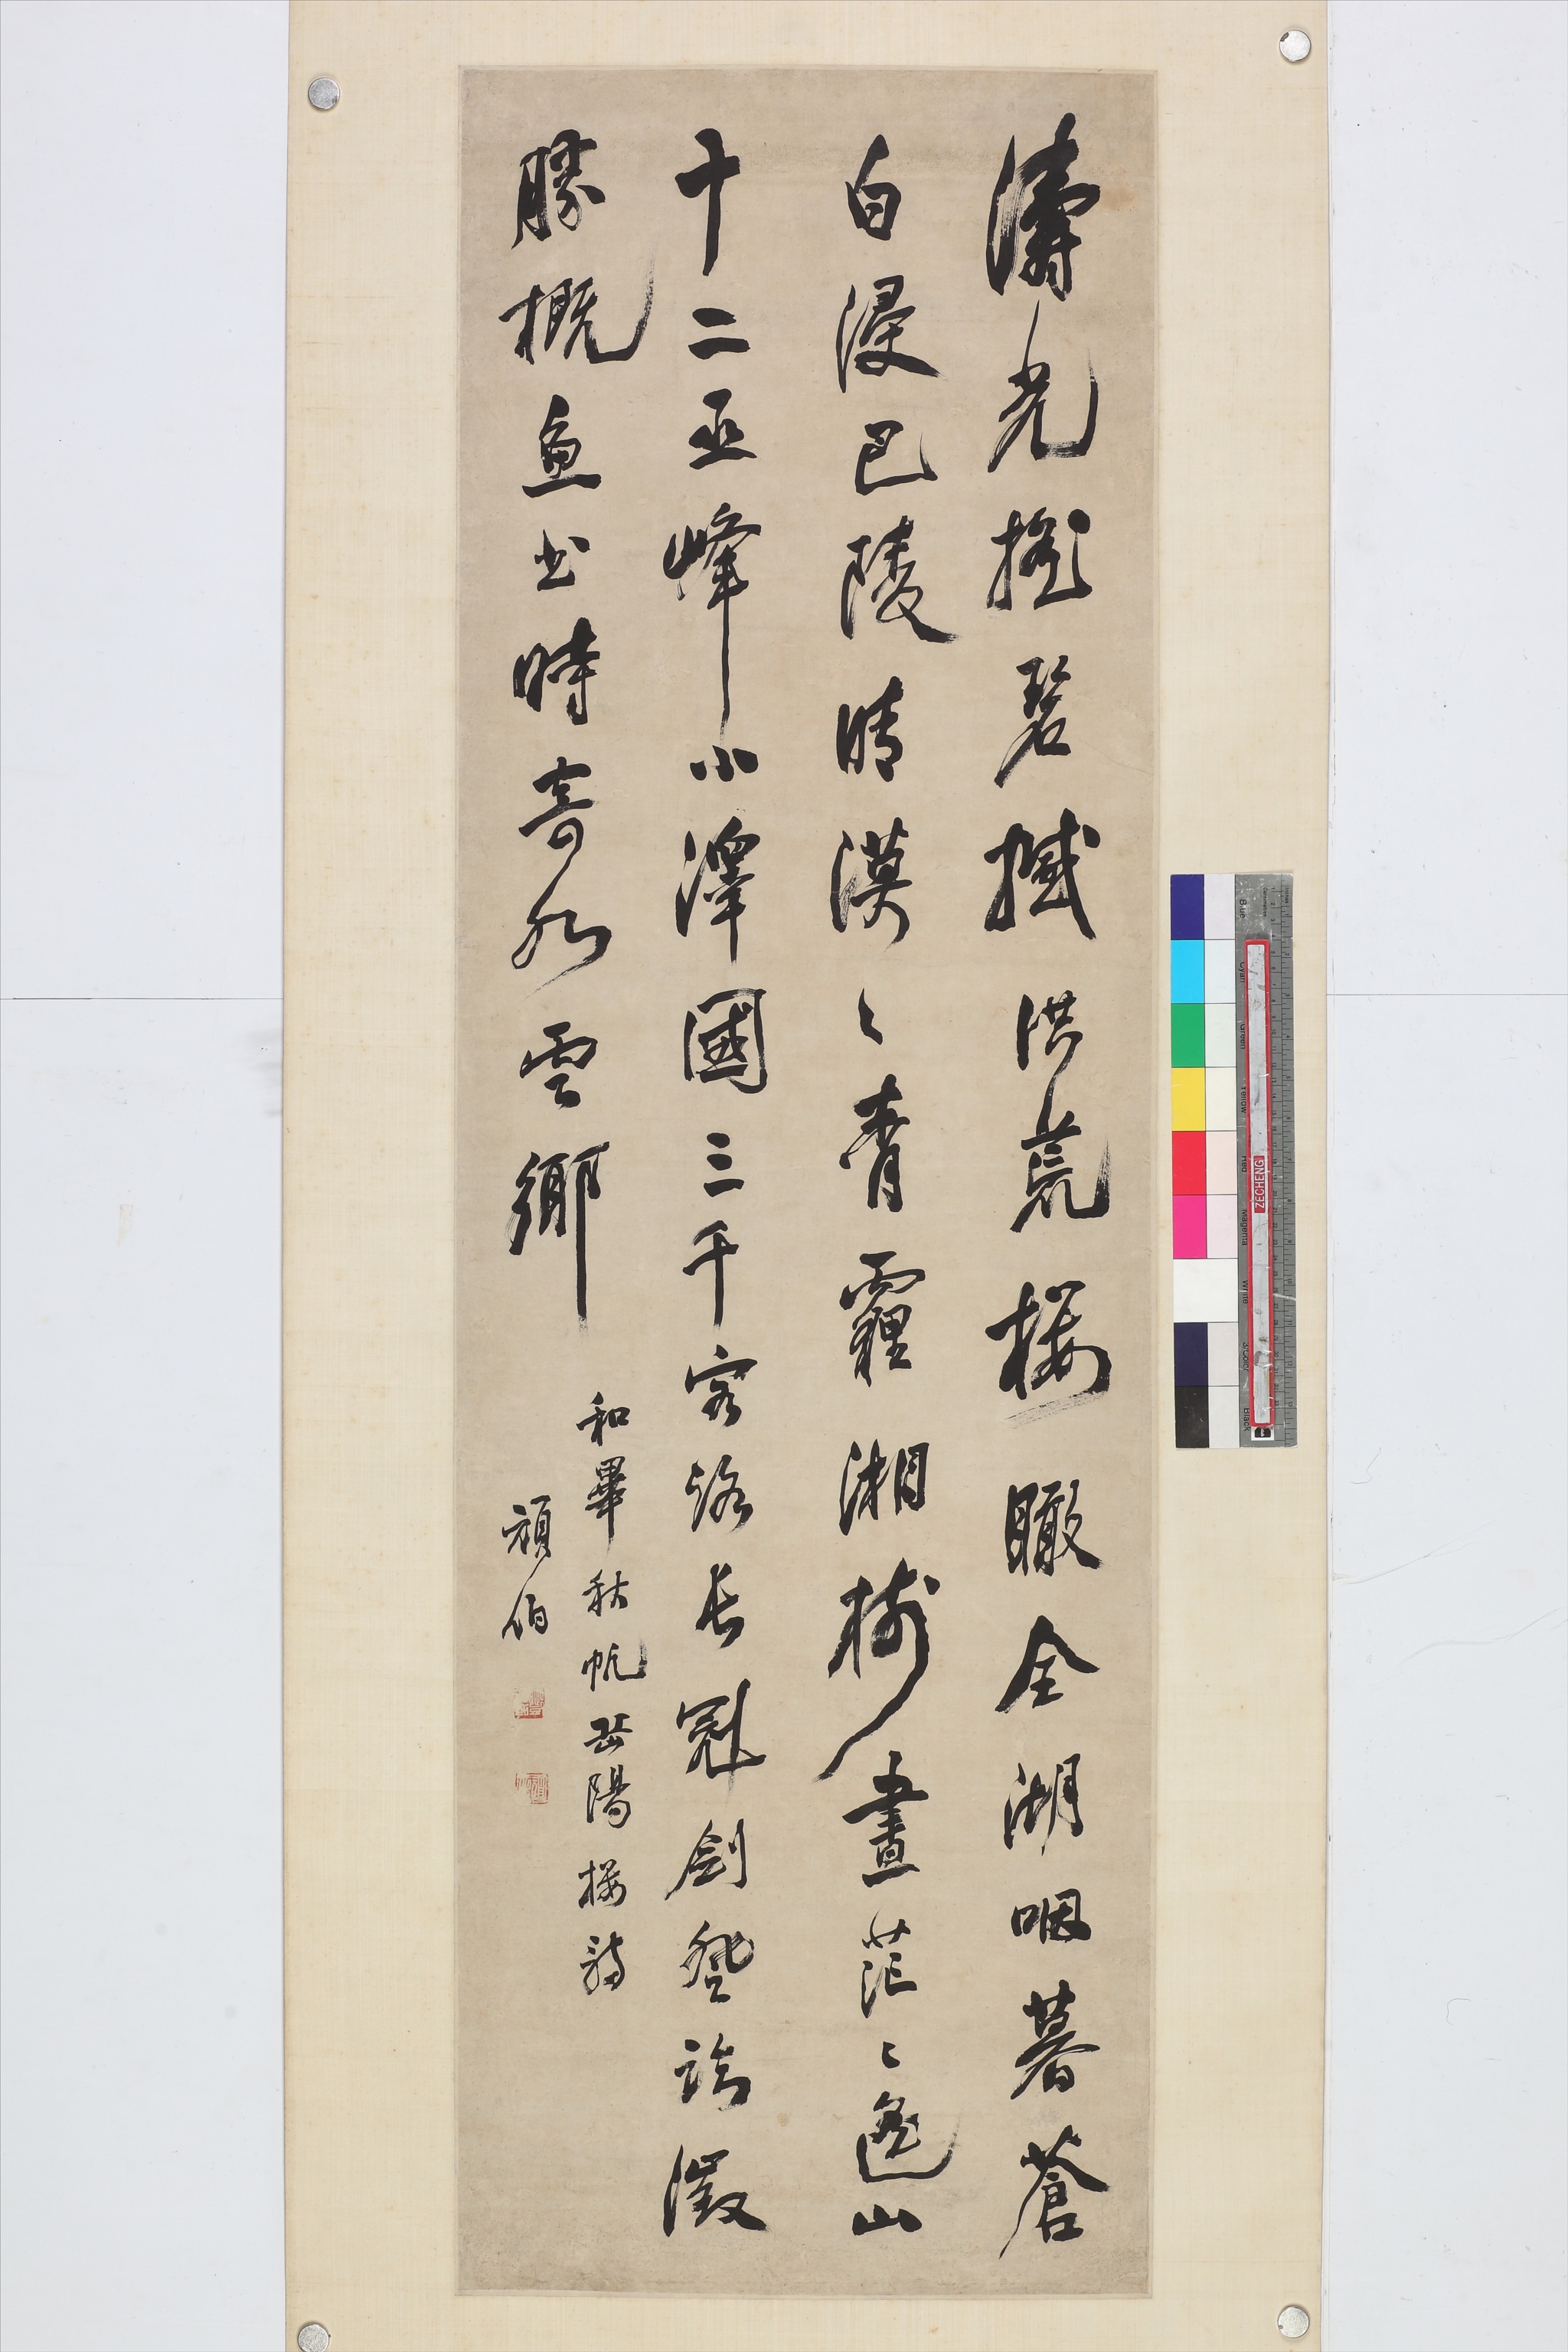 濤光搖碧撼洪荒樓瞰全湖咽暮蒼
白浸巴陵晴漠〻青霾湘樹晝茫〻遙山
十二巫峰小澤國三千客路長冠劍登徵
勝概魚書時寄水雲鄉
和畢秋帆岳陽樓詩
頑伯
Blue
Cyan
Green
Yellow
Red
Magenta
White
3/Color
Black
ZECHENG